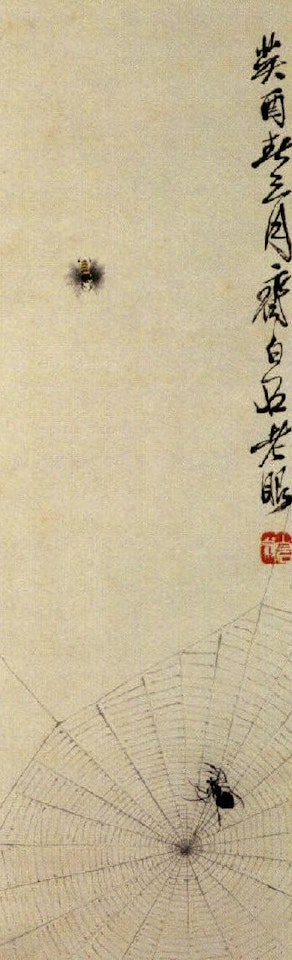 癸酉春三月齊白石老眼